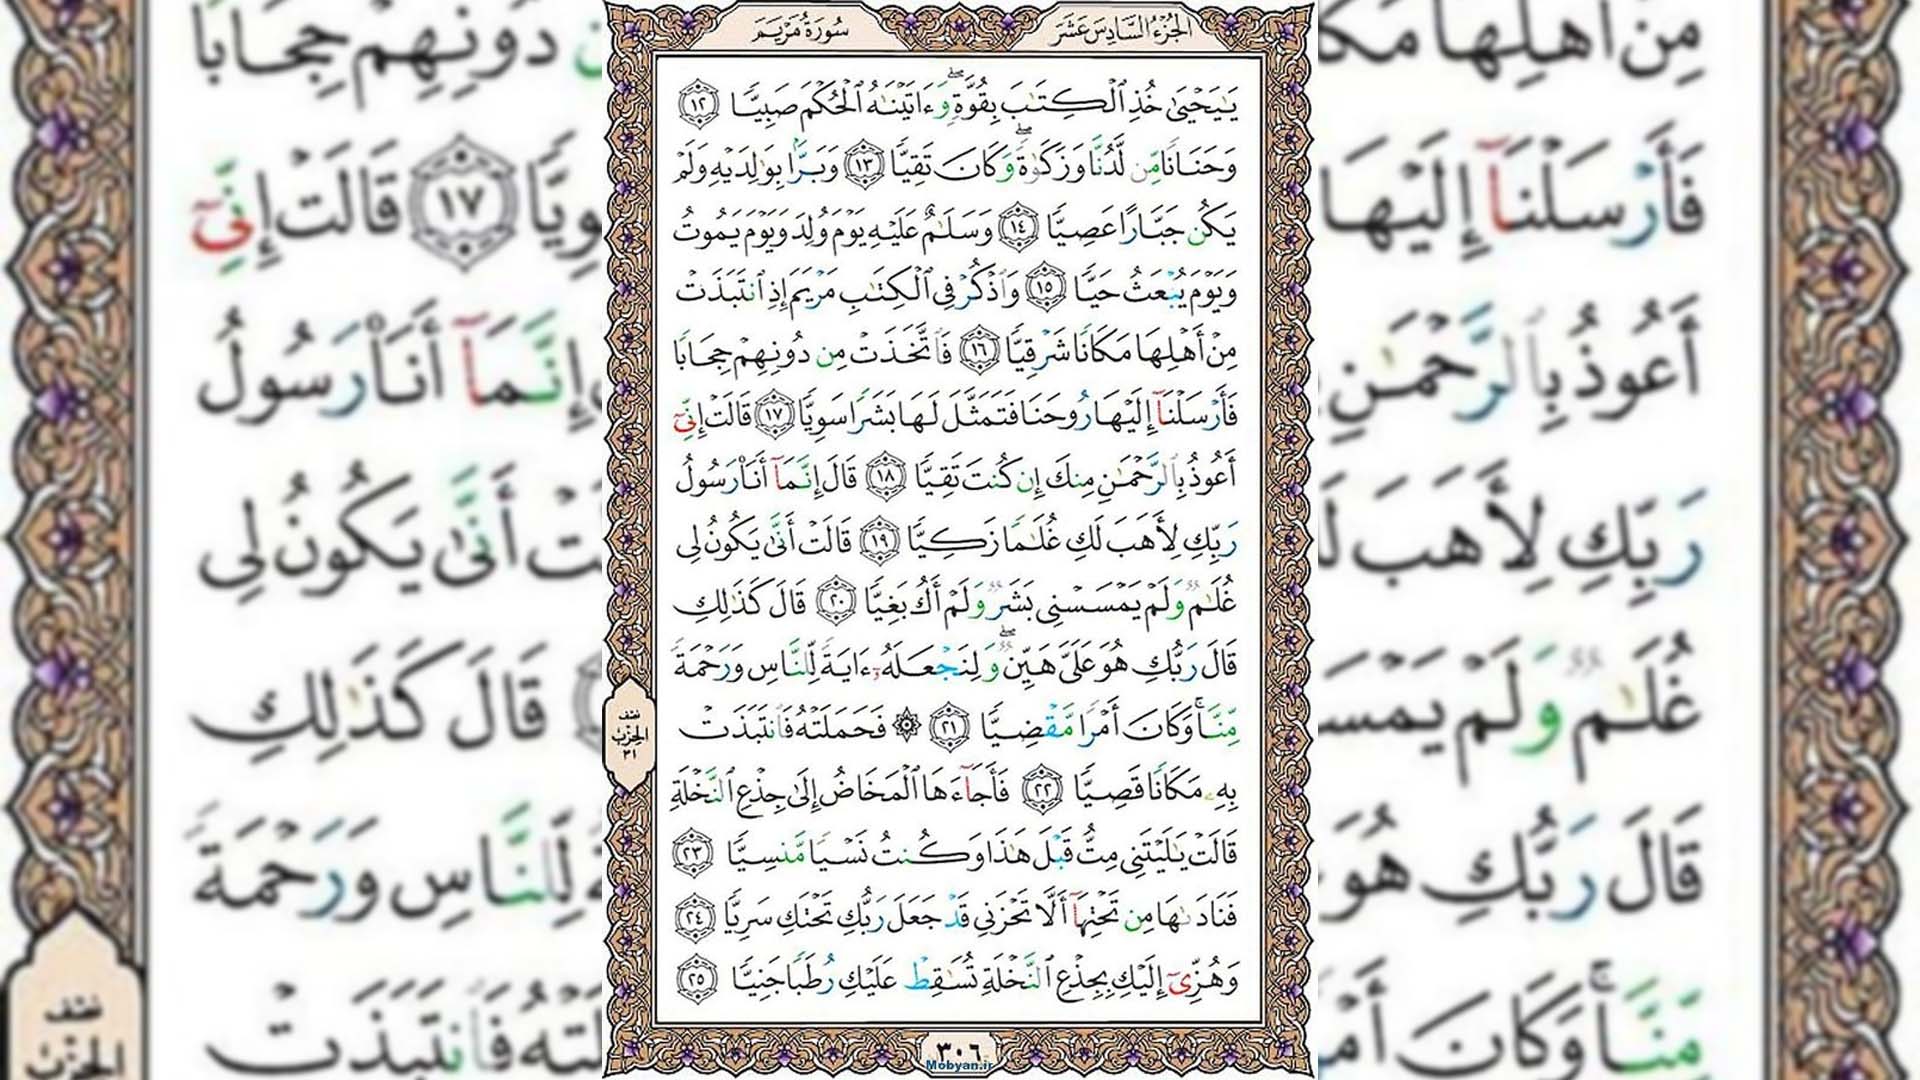 الجُزْءُ السَّادِسَ عَشَرَ
سُورَةُ مَرْيَمَ
يَـٰيَحْيَىٰ خُذِ ٱلْكِتَـٰبَ بِقُوَّةٍۖ وَءَاتَيْنَـٰهُ ٱلْحُكْمَ صَبِيًّا ١٢
وَحَنَانًا مِّن لَّدُنَّا وَزَكَوٰةًۖ وَكَانَ تَقِيًّا ١٣ وَبَرًّۢا بِوَٰلِدَيْهِ وَلَمْ
يَكُن جَبَّارًا عَصِيًّا ١٤ وَسَلَـٰمٌ عَلَيْهِ يَوْمَ وُلِدَ وَيَوْمَ يَمُوتُ
وَيَوْمَ يُبْعَثُ حَيًّا ١٥ وَٱذْكُرْ فِى ٱلْكِتَـٰبِ مَرْيَمَ إِذِ ٱنتَبَذَتْ
مِنْ أَهْلِهَا مَكَانًا شَرْقِيًّا ١٦ فَٱتَّخَذَتْ مِن دُونِهِمْ حِجَابًا
فَأَرْسَلْنَآ إِلَيْهَا رُوحَنَا فَتَمَثَّلَ لَهَا بَشَرًا سَوِيًّا ١٧ قَالَتْ إِنِّىٓ
أَعُوذُ بِٱلرَّحْمَـٰنِ مِنكَ إِن كُنتَ تَقِيًّا ١٨ قَالَ إِنَّمَآ أَنَا۠ رَسُولُ
رَبِّكِ لِأَهَبَ لَكِ غُلَـٰمًا زَكِيًّا ١٩ قَالَتْ أَنَّىٰ يَكُونُ لِى
غُلَـٰمٌ وَلَمْ يَمْسَسْنِى بَشَرٌ وَلَمْ أَكُ بَغِيًّا ٢٠ قَالَ كَذَٰلِكِ
قَالَ رَبُّكِ هُوَ عَلَىَّ هَيِّنٌۖ وَلِنَجْعَلَهُۥٓ ءَايَةً لِّلنَّاسِ وَرَحْمَةً
مِّنَّاۚ وَكَانَ أَمْرًا مَّقْضِيًّا ٢١ ۞ فَحَمَلَتْهُ فَٱنتَبَذَتْ
بِهِۦ مَكَانًا قَصِيًّا ٢٢ فَأَجَآءَهَا ٱلْمَخَاضُ إِلَىٰ جِذْعِ ٱلنَّخْلَةِ
قَالَتْ يَـٰلَيْتَنِى مِتُّ قَبْلَ هَـٰذَا وَكُنتُ نَسْيًا مَّنسِيًّا ٢٣
فَنَادَىٰهَا مِن تَحْتِهَآ أَلَّا تَحْزَنِى قَدْ جَعَلَ رَبُّكِ تَحْتَكِ سَرِيًّا ٢٤
وَهُزِّىٓ إِلَيْكِ بِجِذْعِ ٱلنَّخْلَةِ تُسَـٰقِطْ عَلَيْكِ رُطَبًا جَنِيًّا ٢٥
نصف
الحِزْبْ
٣١
٣٠٦
Mobyan.ir